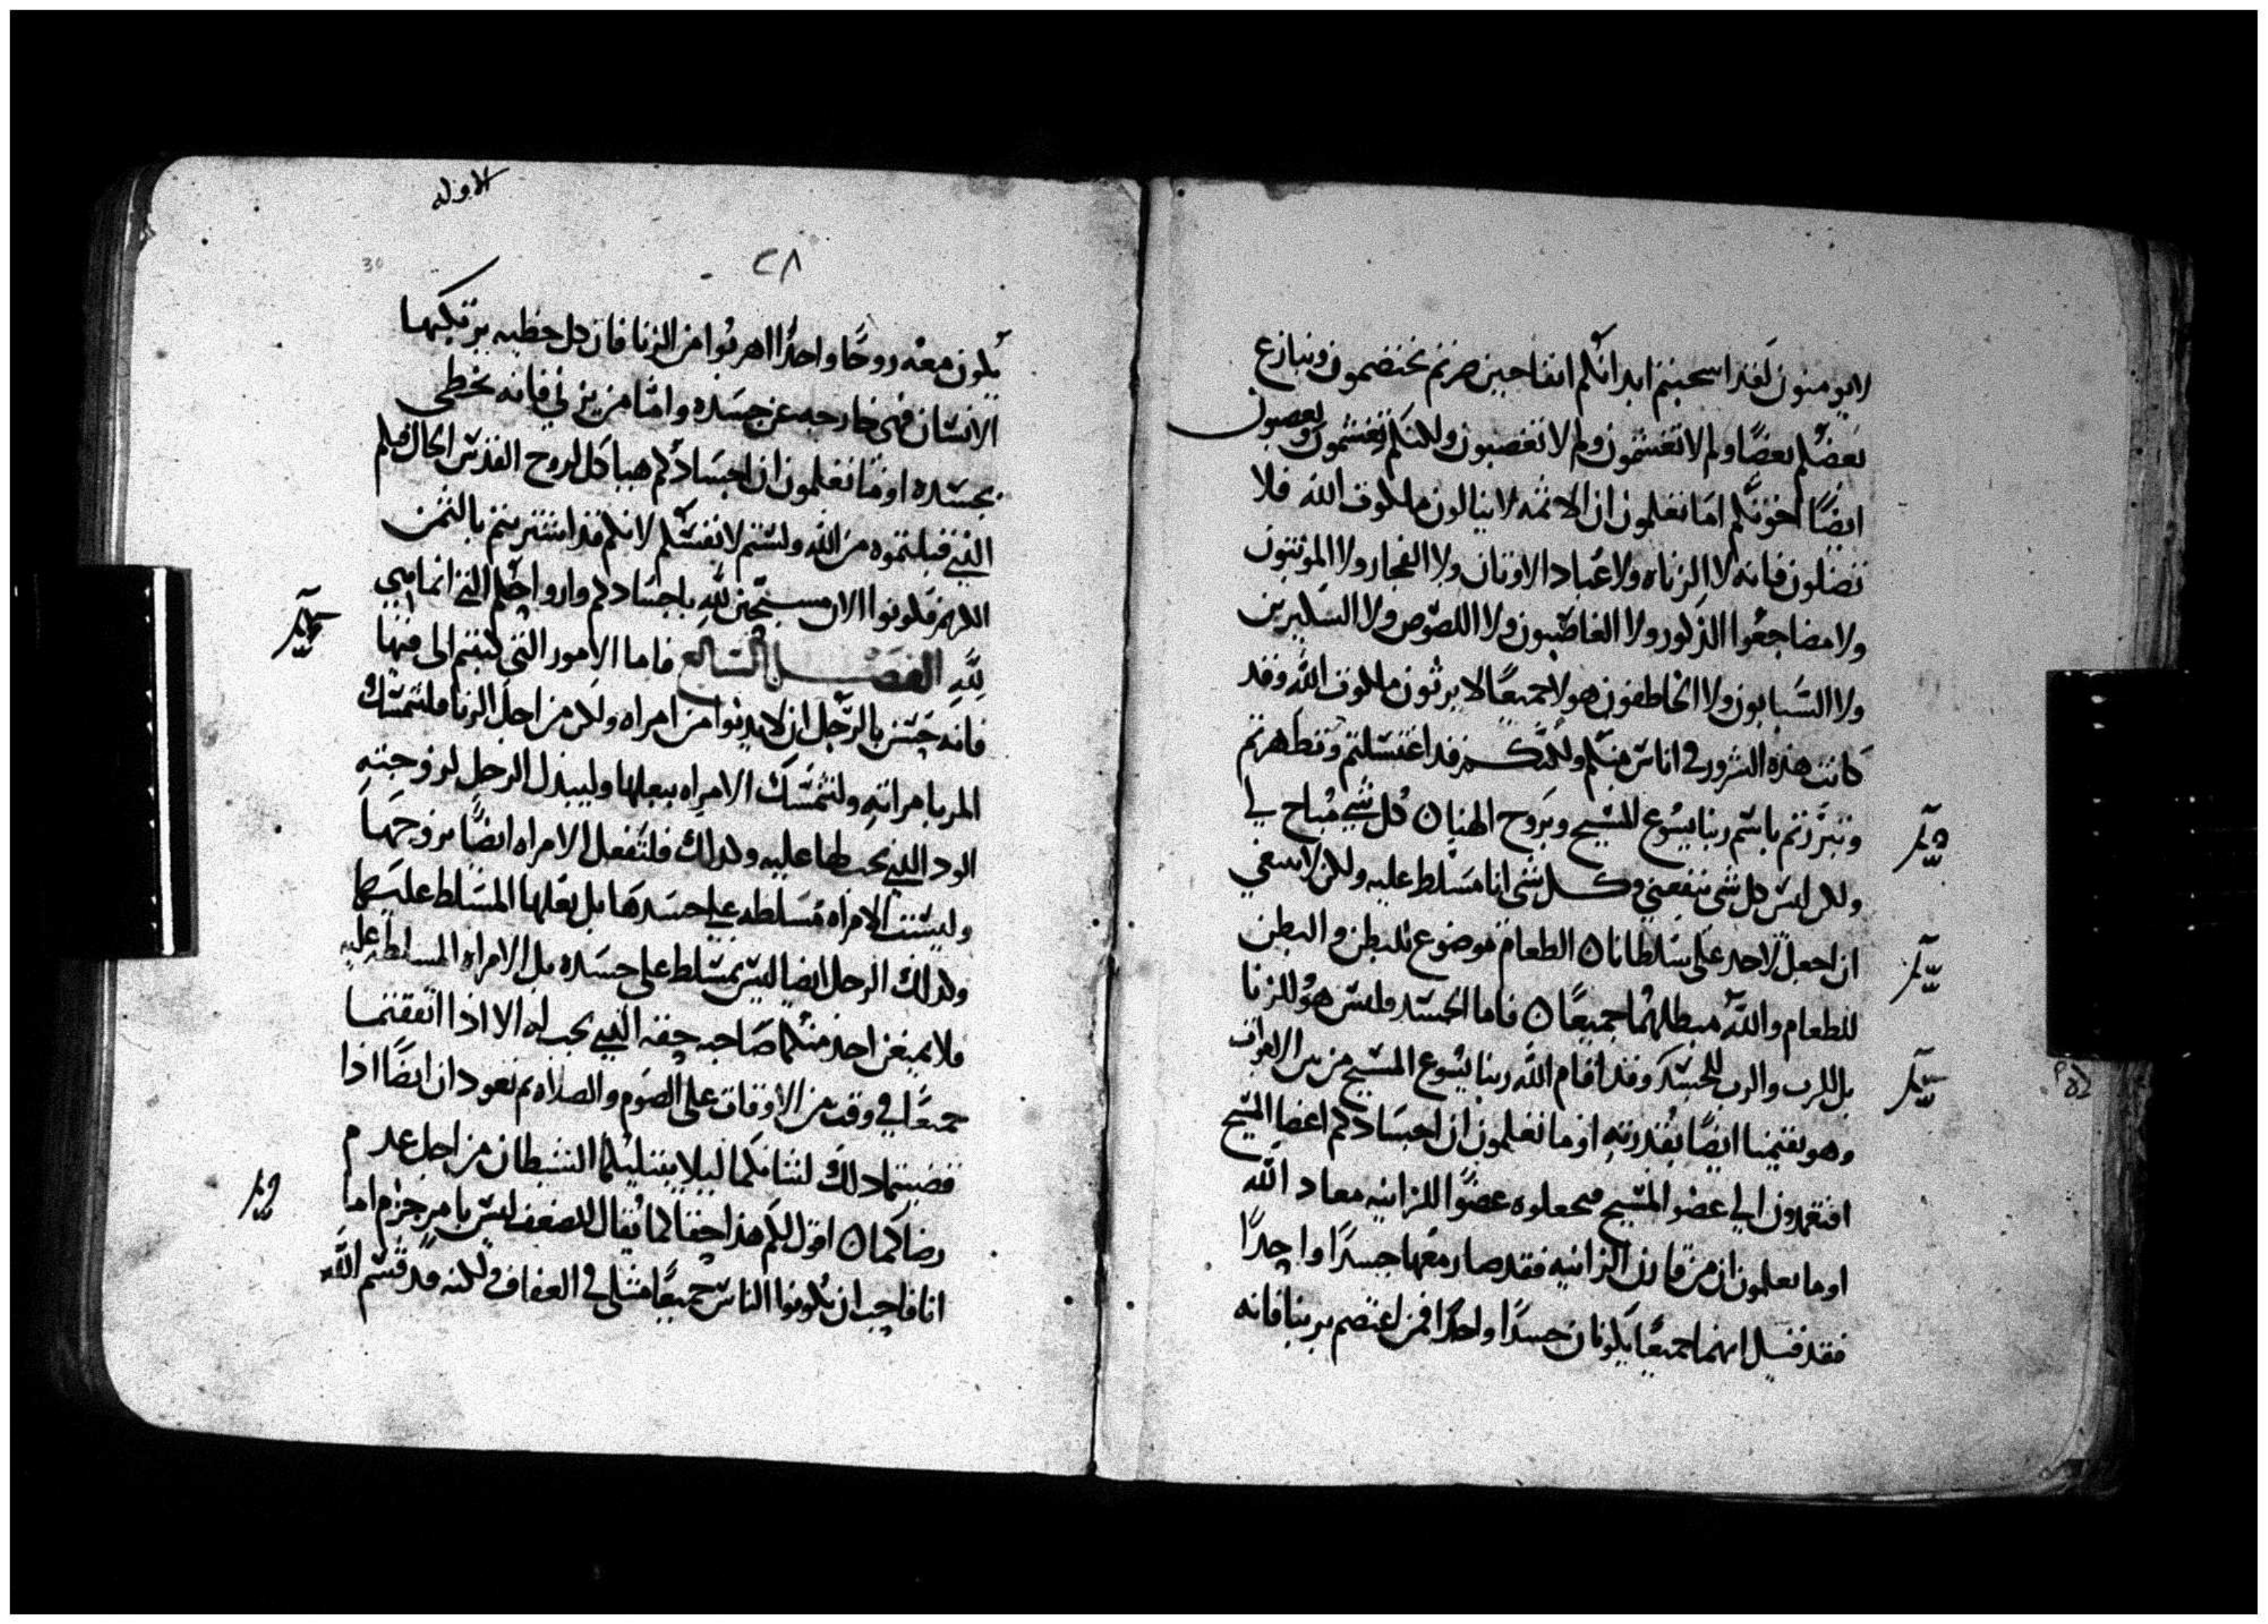 لايومنون لقد اسحبتم ابدانكم انفا حين صرتم تختصمون وينازع
بعضكم بعضًا ولم لا تغشمون ولم لا تغصبون ولكنكم تغشمون وتغصبون
ايضًا اخوتكم اما تعلمون ان الاثمه لا ينالون ملكوت الله فلا
تضلون فانه لا الزناه ولا عُباد الاوثان ولا الفجار ولا الموثنون
ولا مضاجعوا الذكور ولا الغاصبون ولا اللصوص ولا السكيرين
ولا السَبابون ولا الخاطفون هولا جميعًا لا يرثون ملكوت الله وقد
كانت هذه الشرور في اناس منكم ولكنكم قد اغتسلتم وتطهرتم
وتبررتم باسم ربنا يسُوع المسيح وبروح الهنا ن كل شي مُباح لي
ولكن ليس كل شي ينفعني وكل شي انا مسَلط عليه ولكن لا ينبغي
ان اجعل لاحد علي سلطانا ن الطعام موضوع للبطن والبطن
للطعام والله مبطلهُما جميعًا ن فاما الجسَد فليس هوُ للزنا
بل للرب والرب للجسَد وقد اقام الله ربنا يسُوع المسيح من بين الاموات
وهو يقيمنا ايضًا بقُدرته اوما تعلمون ان اجسَادكم اعضا المسيح
افتعمدون الي عضو المسيح فتجعلوه عضوًا للزانيه معاد الله
اوما تعلمون ان من قارن الزانيه فقد صار معها جسدًا واحدًا
فقد قيل انهما جميعًا يكونان جسدًا واحدًا فمن اعتصم بربنا فانه
الاوله
٢٨
30
يكون معه روحًا واحدًا اهربُوا من الزنا فان كل خطيه يرتكبها
الانسَان فهي خارجه عن جسَده وامَا من يزني فانه يخطي
بجسَده اوما تعلمون ان اجسَادكم هيا كل لروح القدس الحال فيكم
الذي قبلتموه من الله ولستم لانفسَكم لانكم قد اشتريتم بالثمن
الكريم فكونوا الان مسبّحين لله باجسَادكم وارواحكم التي انما هي
لله الفصل السابع فاما الامور التي كتبتم الي فيها
فانه حَسَن بالرَجل ان لا يدنوا من امراه ولكن من اجل الزنا فليتمسَك
المر بامراته ولتتمسَك الامراه ببعلها وليبذل الرجل لزوجته
الود الذي يحبطها عليه وكذلك فلتَفعل الامراه ايضًا بزوجهَا
وليسَت الامراه مُسَلطه علي جسَدهَا بل بعَلها المسَلط عليهَا
وكذلك الرجل ايضا ليسَ بمسَلط علي جسَده بل الامراه المسلطه عليه
فلا يمنعن احد منكما صَاحبه حقه الذي يجب له الا اذا اتفقتما
جميعًا في وقت من الاوقات علي الصَوم والصلاه ثم تعودان ايضًا اذا
قضيتما ذلك لشانكما ليلا يبتليكما الشيطان من اجل عدم
رضاكما ن اقول لكم هذا حقا كما يُقال للضعف ليسَ بامر جزم اما
انا فاحب ان يكونوا الناسَ جميعًا مثلي في العفاف ولكنه قد قسَم الله